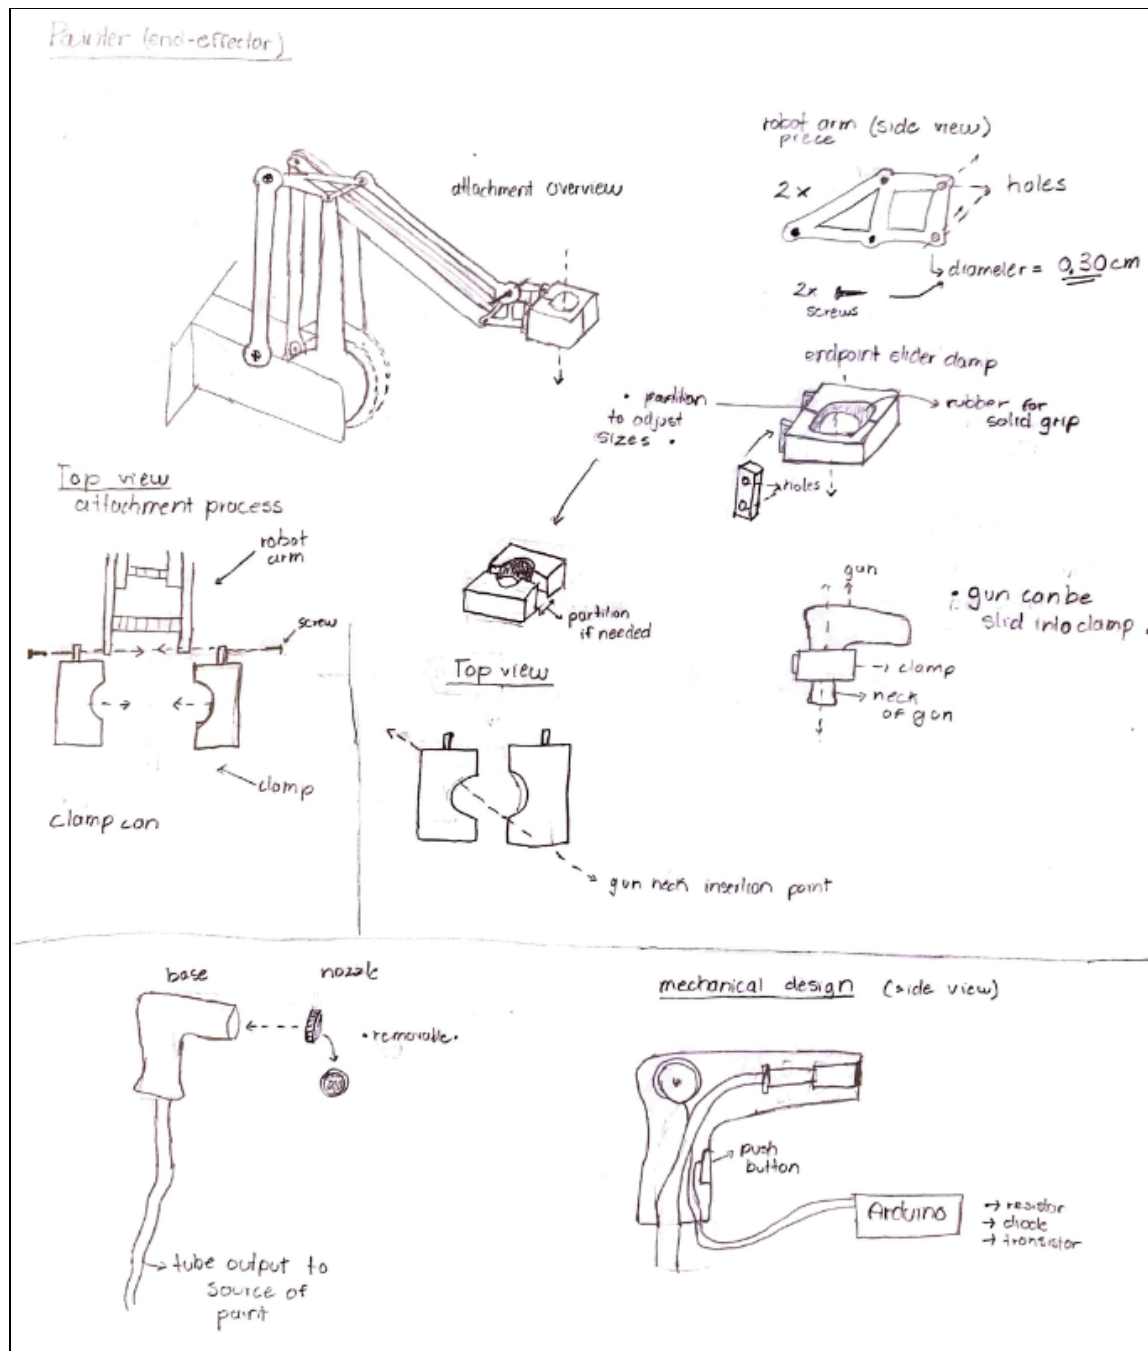 Painter (end-effector)
attachment overview
robot arm (side view)
piece
2x
holes
diameter = 0.30cm
2x
screws
endpoint slider clamp
• partition
to adjust
sizes •
rubber for
solid grip
holes
Top view
attachment process
robot
arm
screw
clamp
clamp can
partition
if needed
Top view
gun neck insertion point
gun
• gun can be
slid into clamp.
clamp
neck
of gun
base
nozzle
• removable •
tube output to
source of
paint
mechanical design (side view)
push
button
Arduino
→ resistor
→ diode
→ transistor